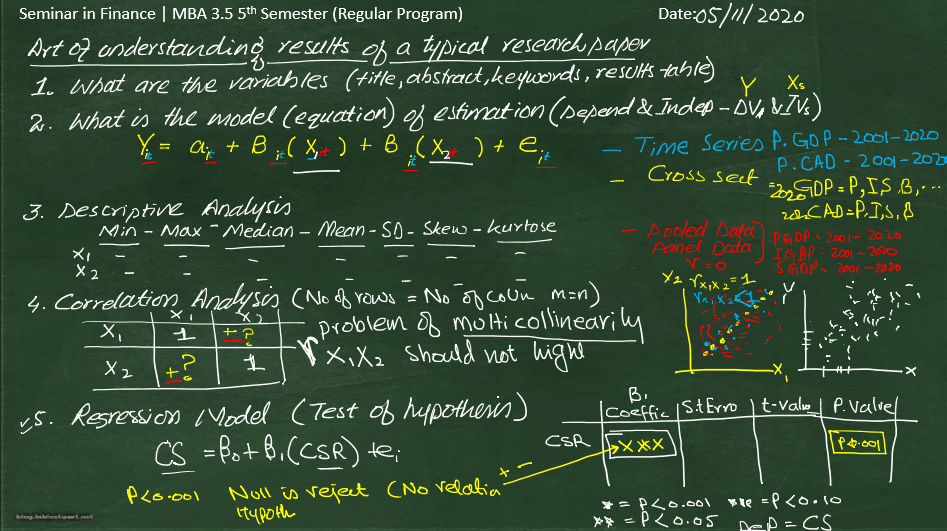 Seminar in Finance | MBA 3.5 5th Semester (Regular Program)
Date:05/11/2020
Art of understanding results of a typical research paper
1. What are the variables (title, abstract, keywords, results-table)
Y Xs
2. What is the model (equation) of estimation (Depend & Indep - DVs & IVs)
Yit = ait + Bit (X1it) + Bit (X2it) + eit
- Time Series P.GDP - 2001-2020
P.CAD - 2001-2020
- Cross sect = 2020 GDP = P, I, S, B, ...
2020 CAD = P, I, S, B
3. Descriptive Analysis
Min - Max - Median - Mean - SD - Skew - kurtose
X1 - - - - - - -
X2 - - - - - - -
- Pooled Data
Panel Data
r = 0
PGDP - 2001 - 2020
IGDP : 2001 - 2020
SGDP - 2001 - 2020
4. Correlation Analysis (No of rows = No of Coun m=n)
X1 X2
X1 1 +?
X2 +? 1
problem of multicollinearily
r X1X2 should not hight
X2 rX1X2 = 1
rX1X2 < 1
X1
Y
X
5. Regression Model (Test of hypothesis)
CS = β0 + β1 (CSR) + ei
P<0.001 Null is reject (No relation
Hypoth
+ -
B1
Coeffic S.tErro t-Value P.Value
CSR X*** P<0.001
* = P<0.001 *** = P<0.10
** = P<0.05 DeP = CS
blog.bibliotipart.net